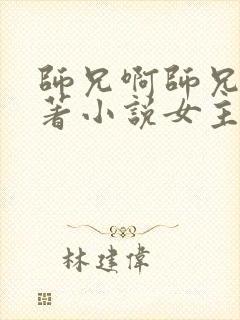 師兄啊師兄
著小說女主
林建偉